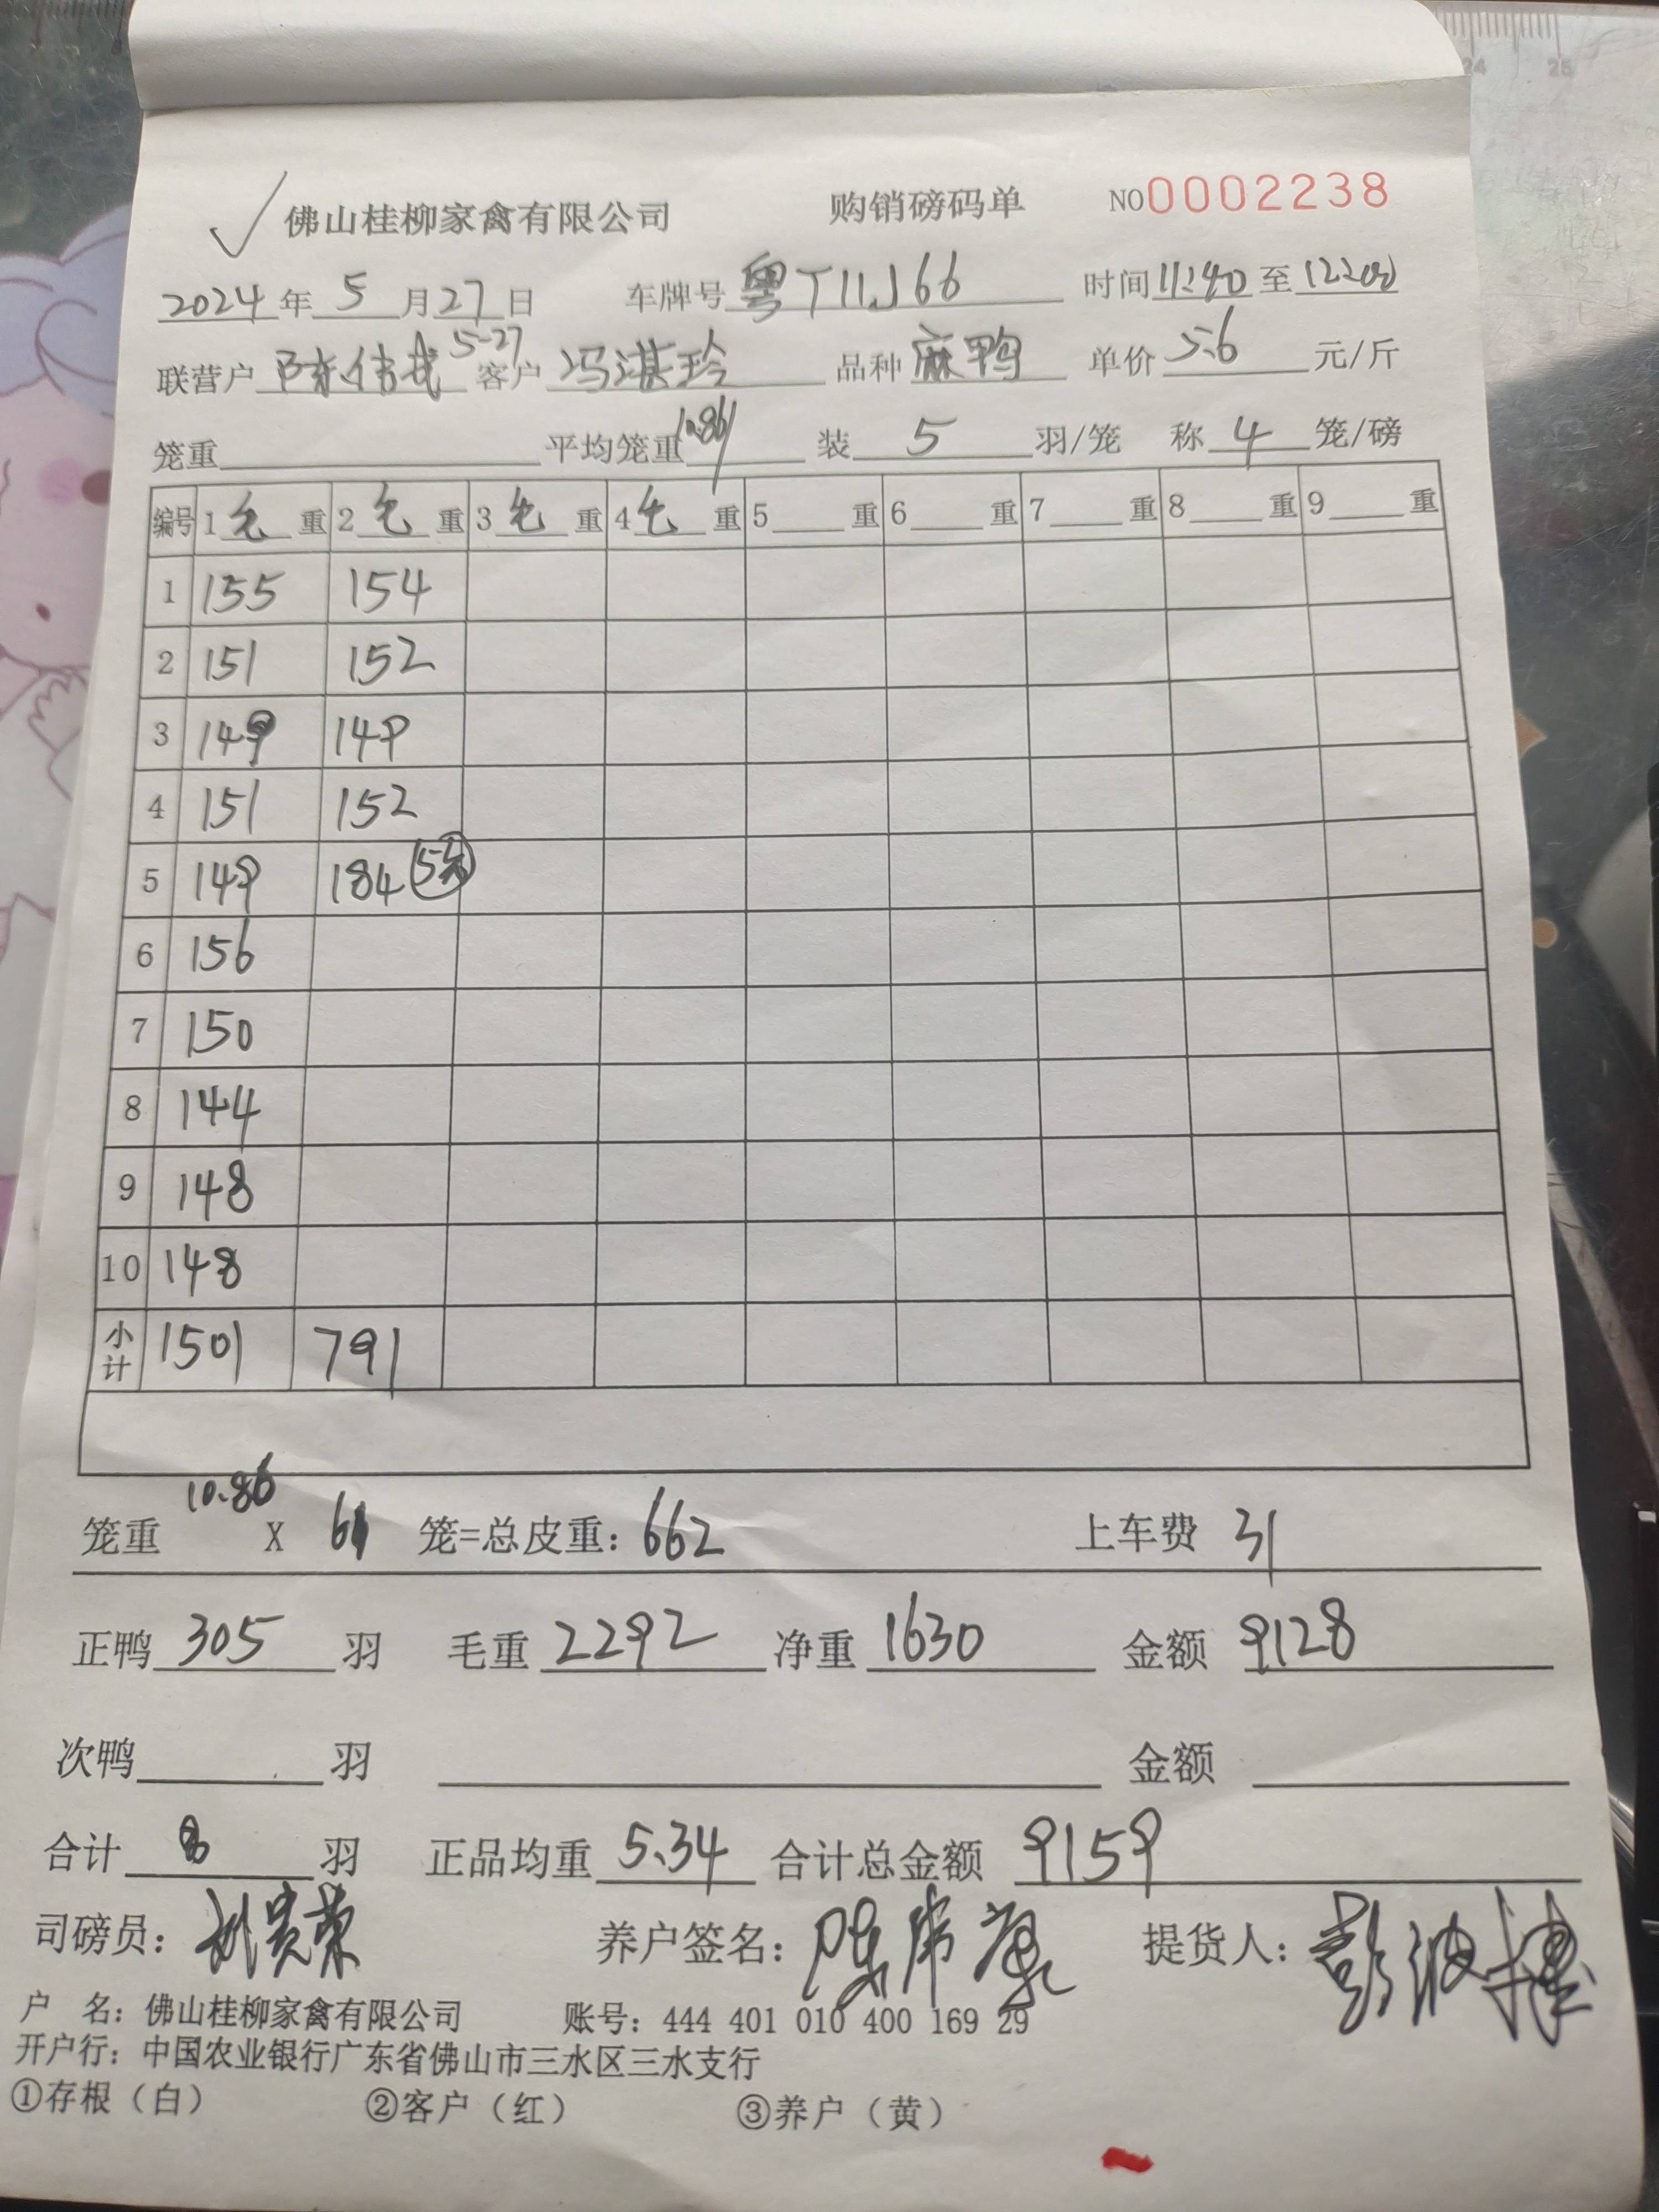 佛山桂柳家禽有限公司 购销磅码单 NO0002238
2024年5月27日 车牌号粤T11J66 时间11:40至12:20
5-27
联营户陈伟成 客户冯湛玲 品种麻鸭 单价5.6元/斤
笼重 平均笼重10.86 装5羽/笼 称4笼/磅
编号 1毛重 2毛重 3毛重 4毛重 5重 6重 7重 8重 9重
1 155 154
2 151 152
3 149 149
4 151 152
5 149 184 5笼
6 156
7 150
8 144
9 148
10 148
小计 1501 791
笼重10.86X61笼=总皮重:662 上车费31
正鸭305羽 毛重2292 净重1630 金额9128
次鸭羽 金额
合计羽 正品均重5.34 合计总金额9159
司磅员: 养户签名: 提货人:
户 名:佛山桂柳家禽有限公司 账号:444 401 010 400 169 29
开户行:中国农业银行广东省佛山市三水区三水支行
①存根(白) ②客户(红) ③养户(黄)